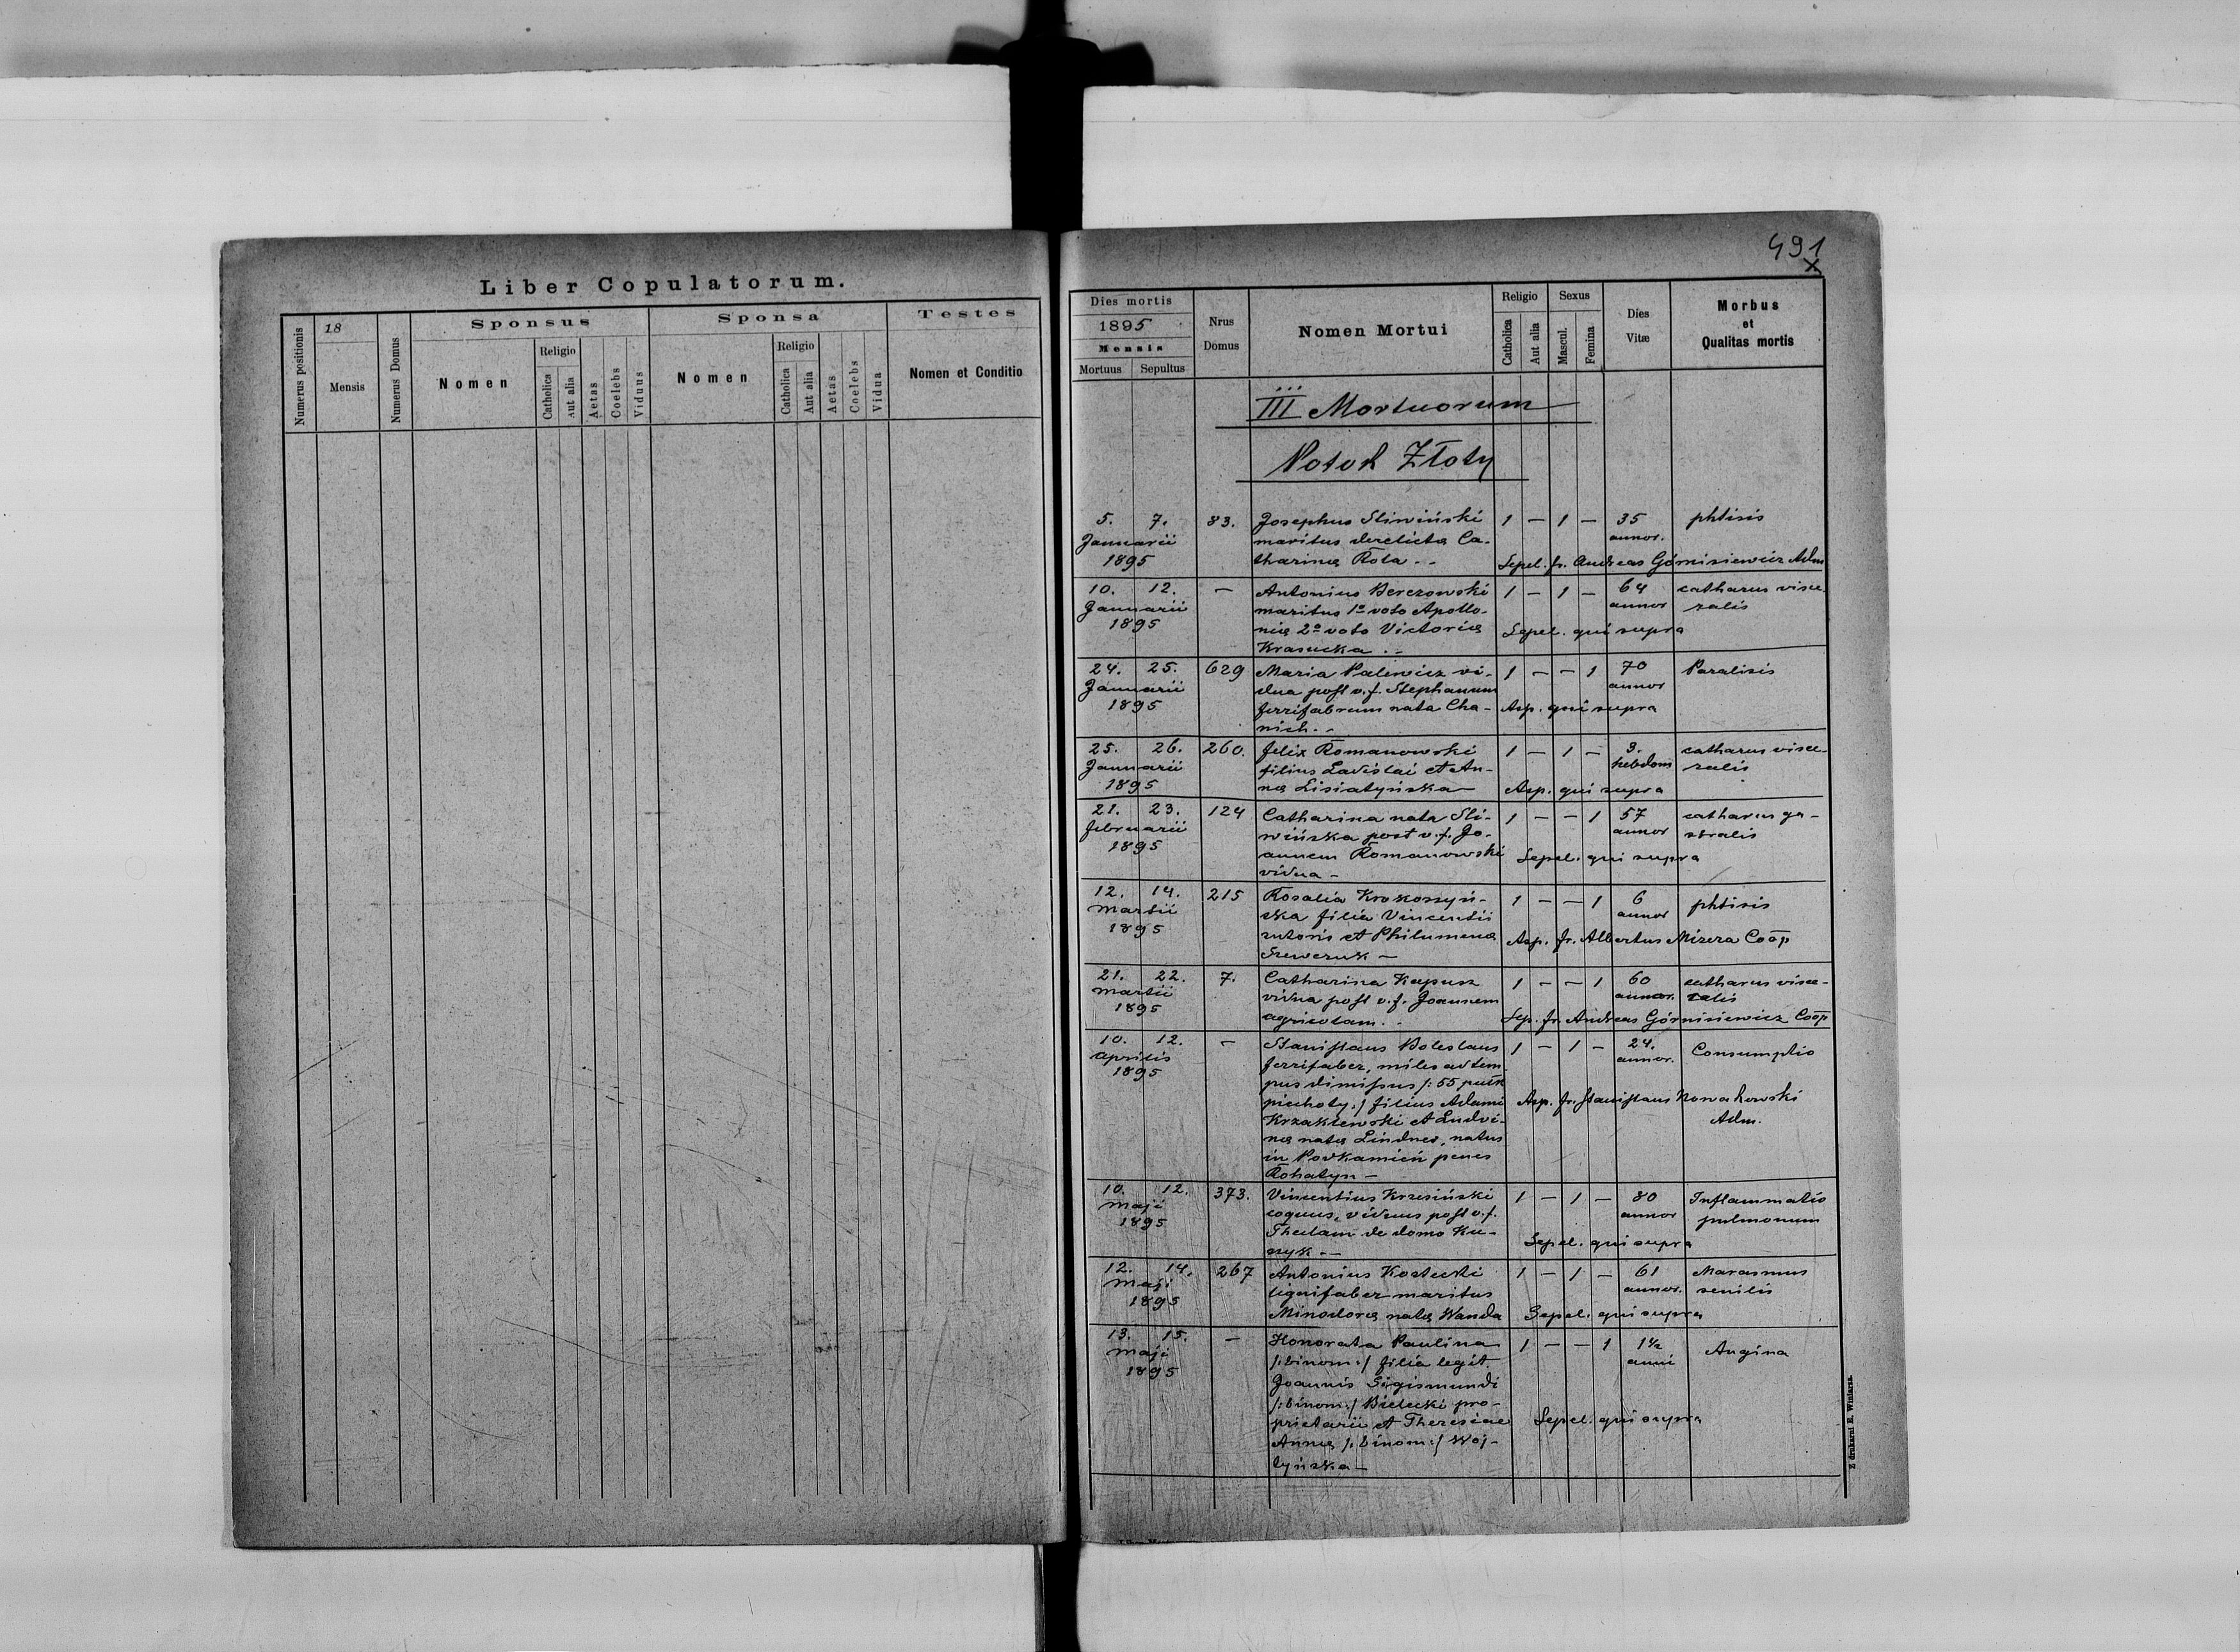 Liber Copulatorum.
Numerus positionis
18
Mensis
Numerus Domus
Sponsus
Nomen
Religio
Catholica
Aut alia
Aetas
Coelebs
Viduus
Sponsa
Nomen
Religio
Catholica
Aut alia
Aetas
Coelebs
Vidua
Testes
Nomen et Conditio
491
x
Dies mortis
1895
Mensis
Mortuus Sepultus
Nrus
Domus
Nomen Mortui
Religio
Catholica
Aut alia
Sexus
Mascul.
Femina
Dies
Vitæ
Morbus
et
Qualitas mortis
III Mortuorum
Potok Złoty
5. 7. 83. Josephus Sliwiński 1 — 1 — 35 phtisis
Januarii maritus derelicta Ca- annor.
1895 tharina Rota . - Sepel. fr. Andreas Górnisiewicz Adm
10. 12. — Antonius Berezowski 1 — 1 — 64 catharus visce-
Januarii maritus 1º voto Apollo- annor ralis
1895 nia 2º voto Victoria Sepel. qui supra
Krasucka . -
24. 25. 629 Maria Palewicz vi- 1 — — 1 70 Paralisis
Januarii dua post v. f. Stephanum annor
1895 ferrifabrum nata Cha- Asp. qui supra
nich. -
25. 26. 260. Felix Romanowski 1 — 1 — 3. catharus visce-
Januarii filius Ladislai et An- hebdom ralis
1895 na Lisiatyńska — Asp. qui supra
21. 23. 124 Catharina nata Sli- 1 — — 1 57 catharus ga-
februarii wińska post v. f. Jo- annor stralis
1895 annem Romanowski Sepel. qui supra
vidua -
12. 14. 215 Rosalia Krokoszyń- 1 — — 1 6 phtisis
Martii ska filia Vincentii annor
1895 sutoris et Philumena Asp. fr. Albertus Mizera Coop
Szewczuk —
21. 22. 7. Catharina Kapusz 1 — — 1 60 catharus visce-
Martii vidua post v. f. Joannem annor. ralis
1895 agricolam. . Sep. fr. Andreas Górnisiewicz Coop
10. 12. — Stanislaus Boleslaus 1 — 1 — 24. Consumptio
Aprilis ferrifaber, miles ad tem annor.
1895 pus dimissus /: 55 pułk
piechoty :/ filius Adami Asp. fr. Stanislaus Nowakowski
Krzaklewski et Ludvi- Adm.
na nata Lindner, natus
in Podkamień penes
Rohatyn —
10. 12. 373. Vincentius Krzesiński 1 — 1 — 80 Inflammatio
Maji coquus, viduus post v. f. annor pulmonum
1895 Theclam de domo Ku- Sepel. qui supra
szyk —
12. 14. 267 Antonius Kostecki 1 — 1 — 61 Marasmus
Maji lignifaber maritus annor. senilis
1895 Minodora nata Wanda Sepel. qui supra
13. 15. — Honorata Paulina 1 — — 1 1½ Angina
Maji /: binom :/ filia legit. anni
1895 Joannis Sigismundi
/: binom :/ Bielecki pro-
prietarii et Theresiae Sepel. qui supra
Anna /: binom :/ Woj-
tyńska —
Z drukarni E. Winiarza.